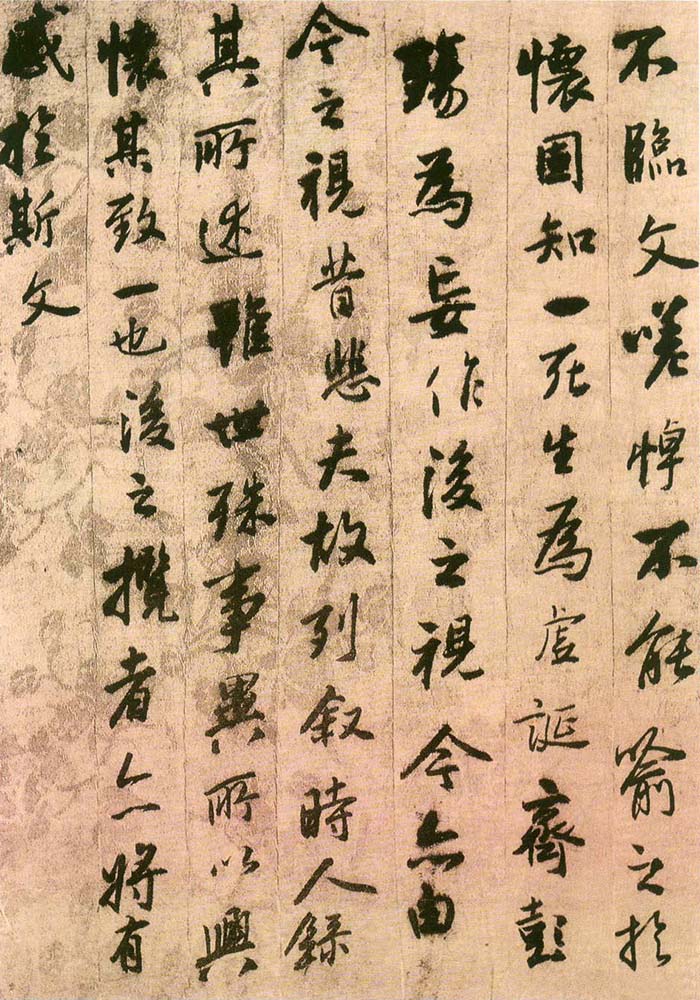 不臨文嗟悼不能喻之於
懷固知一死生為虛誕齊彭
殤為妄作後之視今亦由
今之視昔悲夫故列叙時人錄
其所述雖世殊事異所以興
懷其致一也後之攬者亦將有
感於斯文